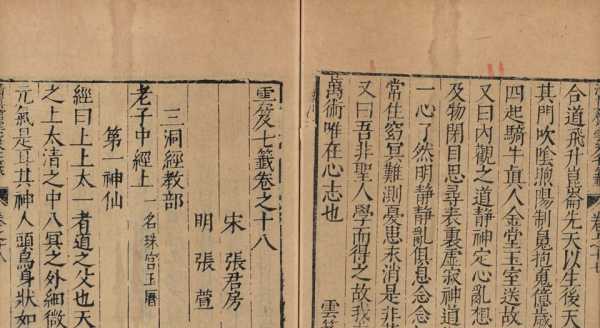 合道飛升崑崙先天以生後天
其門吹陰煦陽制魂拘魄億歲
四起騎牛真人金堂玉室送故
又曰內觀之道靜神定心亂想
及物閉目思尋表裏虛寂神道
一心了然明靜靜亂俱息念念
常住窈冥難測憂患未消是非
又曰吾非聖人學而得之故我
萬術唯在心志也 雲
雲笈七籤卷之十八
宋 張君房
明 張萱
三洞經教部
老子中經上 一名珠宮玉曆
第一神仙
經曰上上太一者道之父也天
之上太清之中八冥之外細微
元氣是耳其神人頭鳥身狀如